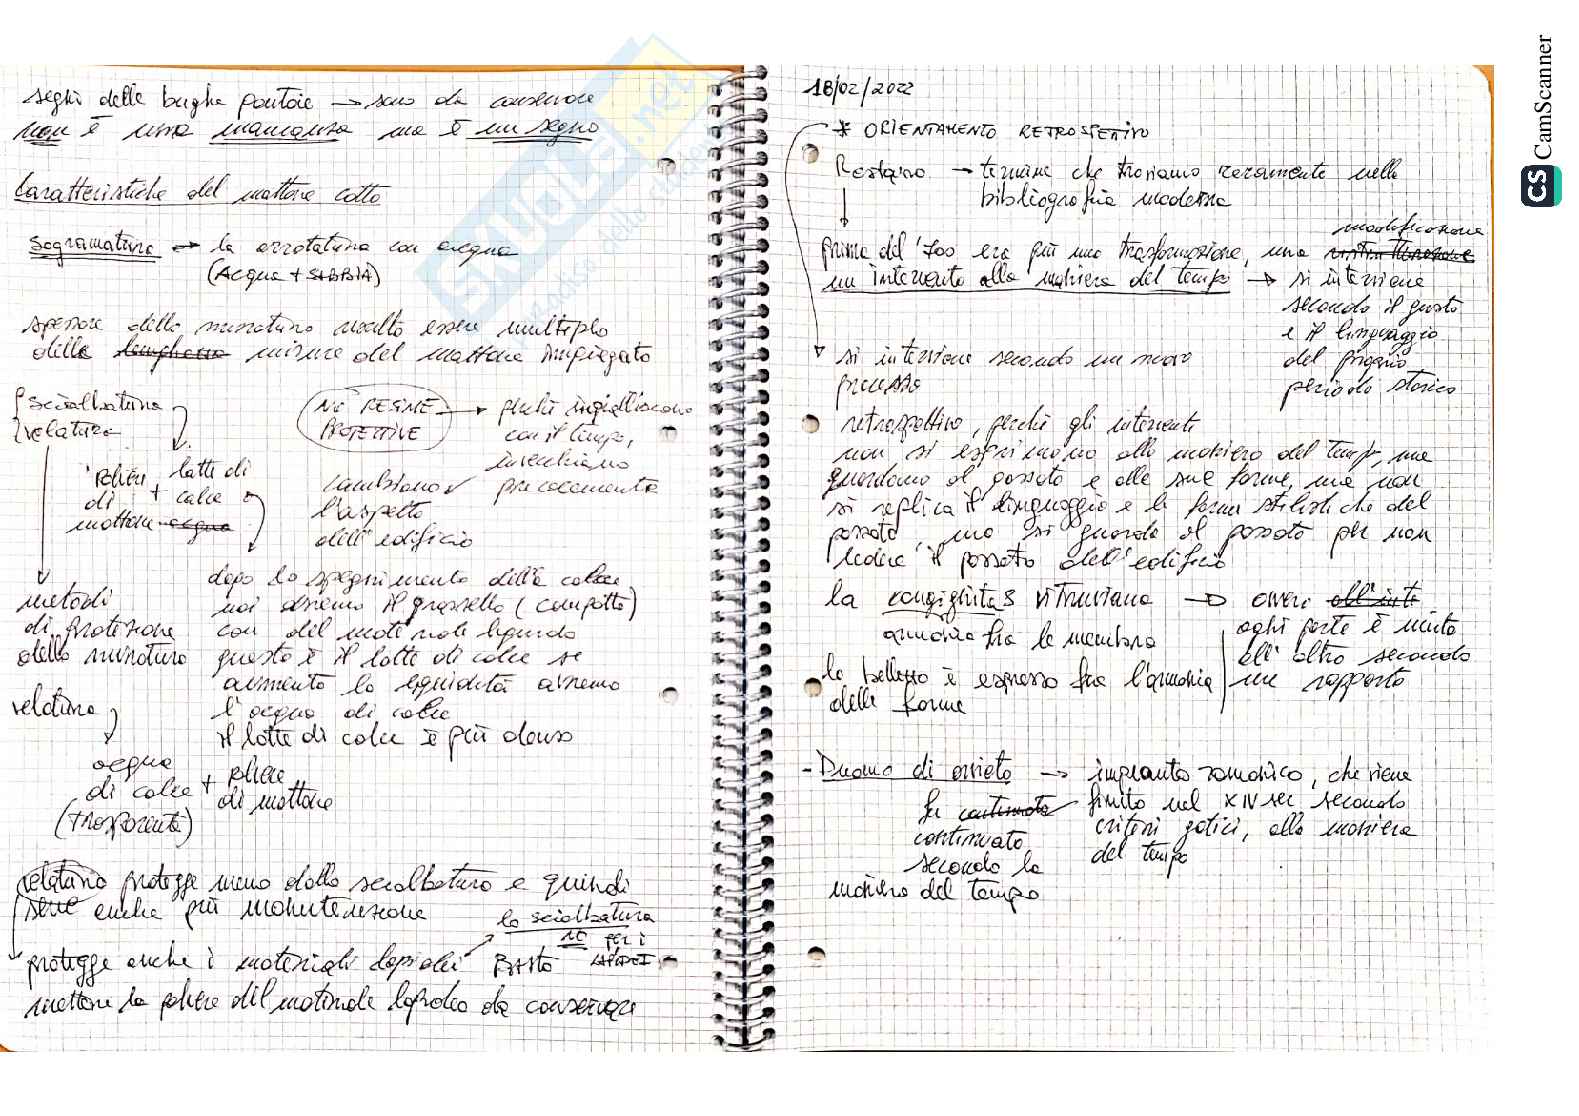 segni delle buche pontaie → sono da conservare
non è una mancanza ma è un segno
Caratteristiche del mattone cotto
sagramatura → la arrotatura con acqua
(ACQUA + SABBIA)
spessore della muratura risulta essere multiplo
della lunghezza misura del mattone impiegato
scialbatura
velatura
NO RESINE PROTETTIVE → perché ingialliscono
con il tempo,
invecchiano
precocemente
cambiano
l'aspetto
dell'edificio
polveri di mattone + latte di calce
acqua
metodi
di protezione
della muratura
dopo lo spegnimento della calce
noi avremo il grassello (compatto)
con del materiale liquido
questo è il latte di calce se
aumento la liquidità avremo
l'acqua di calce
il latte di calce è più denso
velatura
acqua
di calce + polvere
di mattone
(trasparente)
velatura protegge meno della scialbatura e quindi
serve anche più manutenzione
la scialbatura
NO per i
LAPIDEI
protegge anche i materiali lapidei BASTA
mettere la polvere del materiale lapideo da conservare
18/02/2022
* ORIENTAMENTO RETROSPETTIVO
Restauro → termine che troviamo raramente nella
bibliografia moderna
modificazione
prima del '700 era più una trasformazione, una
un intervento alla maniera del tempo → si interviene
secondo il gusto
e il linguaggio
del proprio
periodo storico
si interviene secondo un nuovo
processo
retrospettivo, perché gli interventi
non si esprimono alla maniera del tempo, ma
guardano al passato e alle sue forme, ma non
si replica il linguaggio e le forme stilistiche del
passato, ma si guarda al passato per non
ledere il passato dell'edificio
la vitruviana → ovvero
armonia fra le membra
ogni parte è unita
all'altra secondo
un rapporto
la bellezza è espressa fra l'armonia
delle forme
- Duomo di orvieto → impianto romanico, che viene
finito nel XIV sec secondo
criteri gotici, alla maniera
del tempo
fu continuato
continuato
secondo la
maniera del tempo
SKUOLA.net
CS CamScanner